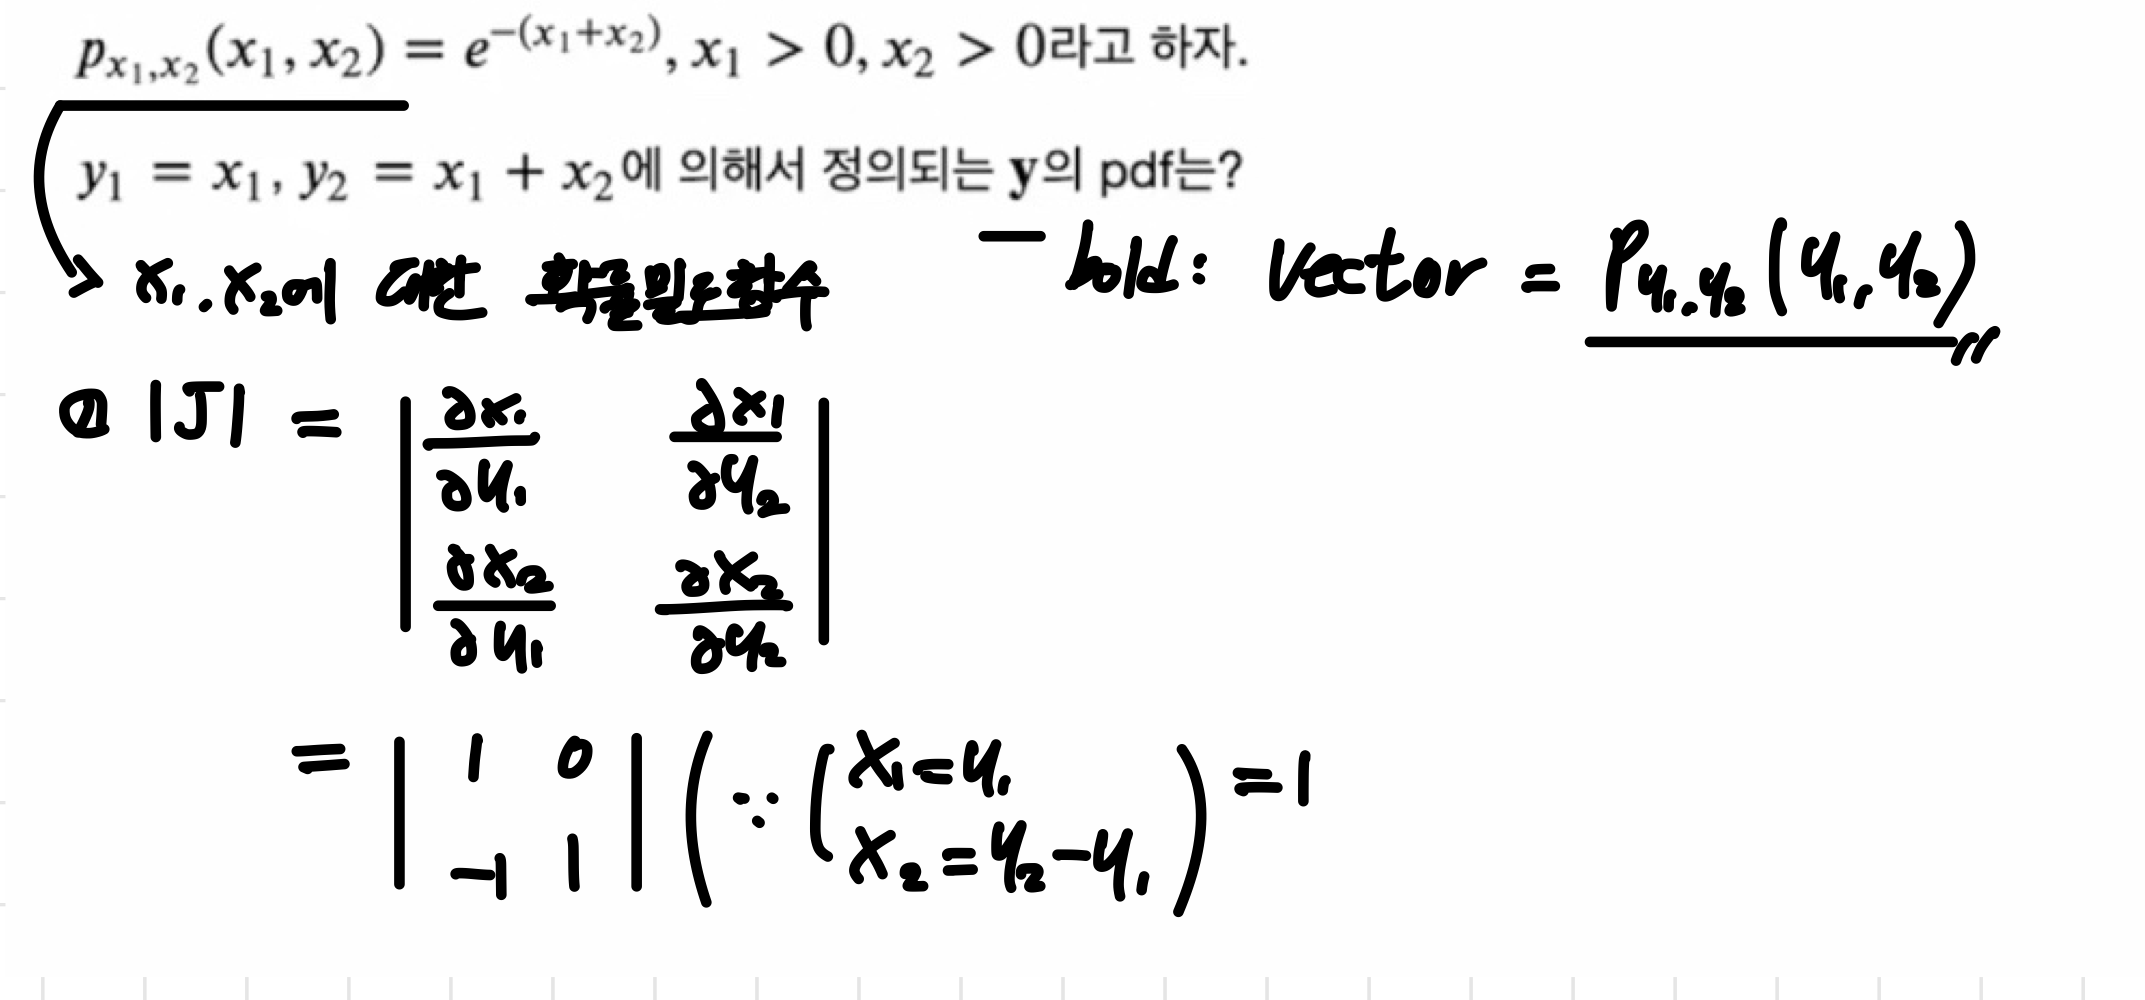 p_{x_1,x_2}(x_1, x_2) = e^{-(x_1+x_2)}, x_1 > 0, x_2 > 0라고 하자.
y_1 = x_1, y_2 = x_1 + x_2에 의해서 정의되는 y의 pdf는?
→ x_1, x_2에 대한 확률밀도함수
- bold: vector = P_{y_1, y_2}(y_1, y_2)〃
① |J| = | ∂x_1/∂y_1 ∂x_1/∂y_2 |
| ∂x_2/∂y_1 ∂x_2/∂y_2 |
= | 1 0 | ( ∵ ( x_1 = y_1 ) = 1
| -1 1 | x_2 = y_2 - y_1